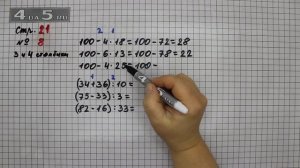 4DA5.RU
Стр. 21
№ 8
3 и 4 столбики
2 1
100 - 4 · 18 = 100 - 72 = 28
100 - 6 · 13 = 100 - 78 = 22
100 - 4 · 25 = 100 -
1 2
(34 + 36) : 10 =
(75 - 33) : 3 =
(82 - 16) : 33 =